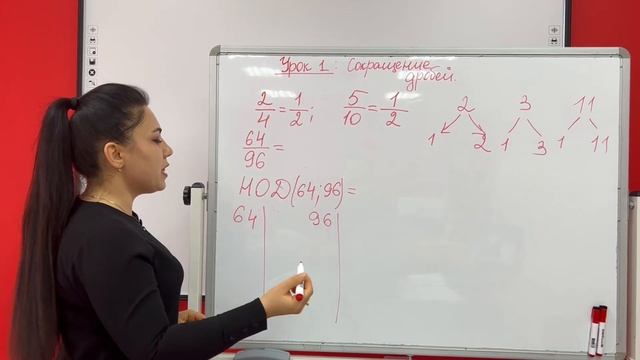 Урок 1: Сокращение
дробей.
2/4 = 1/2; 5/10 = 1/2
64/96 =
НОД(64;96)=
64 96
2 3 11
1 2 1 3 1 11